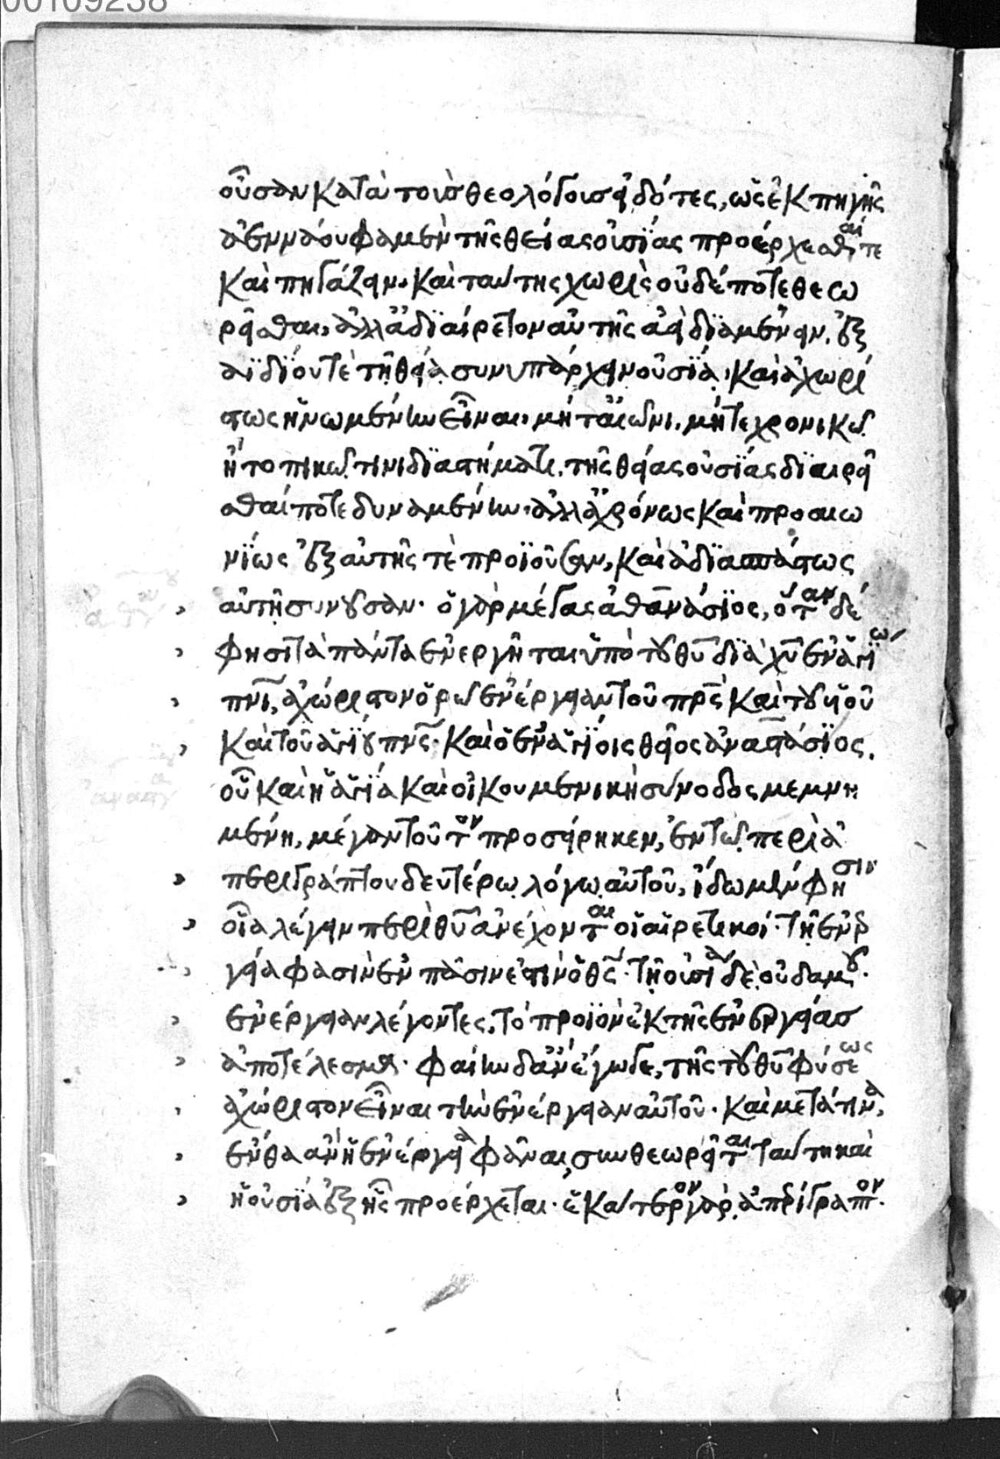 00109238
οὖσαν κατὰ τοὺς θεολόγους εἰδότες, ὡς ἐκ πηγῆς
ἀεννάου φαμὲν τῆς θείας οὐσίας προέρχεσθαί τε
καὶ πηγάζειν. καὶ ταύτης χωρὶς οὐδέποτε θεω
ρεῖσθαι, ἀλλ' ἀδιαίρετον αὐτῆς ἀεὶ διαμένειν. ἐξ
αϊδίου τὲ τῆ θεία συνυπάρχειν οὐσία, καὶ ἀχωρί
στως ἡνωμένην εἶναι, μήτ' αἰῶνι, μήτε χρονικῶ
ἢ τοπικῶ τινι διαστήματι, τῆς θείας οὐσίας διαιρεῖ
σθαί ποτε δυναμένην. ἀλλ' ἀχρόνως καὶ προαιω
νίως ἐξ αὐτῆς τὲ προϊοῦσαν, καὶ ἀδιασπάστως
αὐτῆ συνοῦσαν. ὁ γὰρ μέγας ἀθανάσιος, ὅταν δέ
φησι τὰ πάντα ἐνεργεῖται ὑπὸ τοῦ θυ διὰ χυ ἐν ἁγίω
πνι, ἀχώριστον ὁρῶ ἐνέργειαν τοῦ πρς καὶ τοῦ υἱοῦ
καὶ τοῦ ἁγίου πνς. καὶ ὁ ἐν ἁγίοις θεῖος ἀναστάσιος,
οὗ καὶ ἡ ἁγία καὶ οἰκουμενικὴ σύνοδος μεμνη
μένη, μέγαν τοῦτον προσείρηκεν, ἐν τῶ περὶ ἀ
περιγράπτου δευτέρω λόγω αὐτοῦ, ἴδωμεν φησιν
οἷα λέγειν περὶ θυ ἀνέχονται οἱ αἱρετικοί. τῆ ἐνερ
γεία φασὶν ἐν πᾶσιν ἐστὶν ὁ θς. τῆ οὐσία δὲ οὐδαμοῦ.
ἐνέργειαν λέγοντες, τὸ προϊὸν ἐκ τῆς ἐνεργείας
ἀποτέλεσμα. φαίην δ' ἂν ἔγωγε, τῆς τοῦ θυ φύσεως
ἀχώριστον εἶναι τὴν ἐνέργειαν αὐτοῦ. καὶ μετά τινα,
ἔνθα ἂν ἡ ἐνέργεια φᾶναι, συνθεωρεῖται ταύτη καὶ
ἡ οὐσία ἐξ ἧς προέρχεται. ἑκάτερον γὰρ ἀπερίγραπτον.